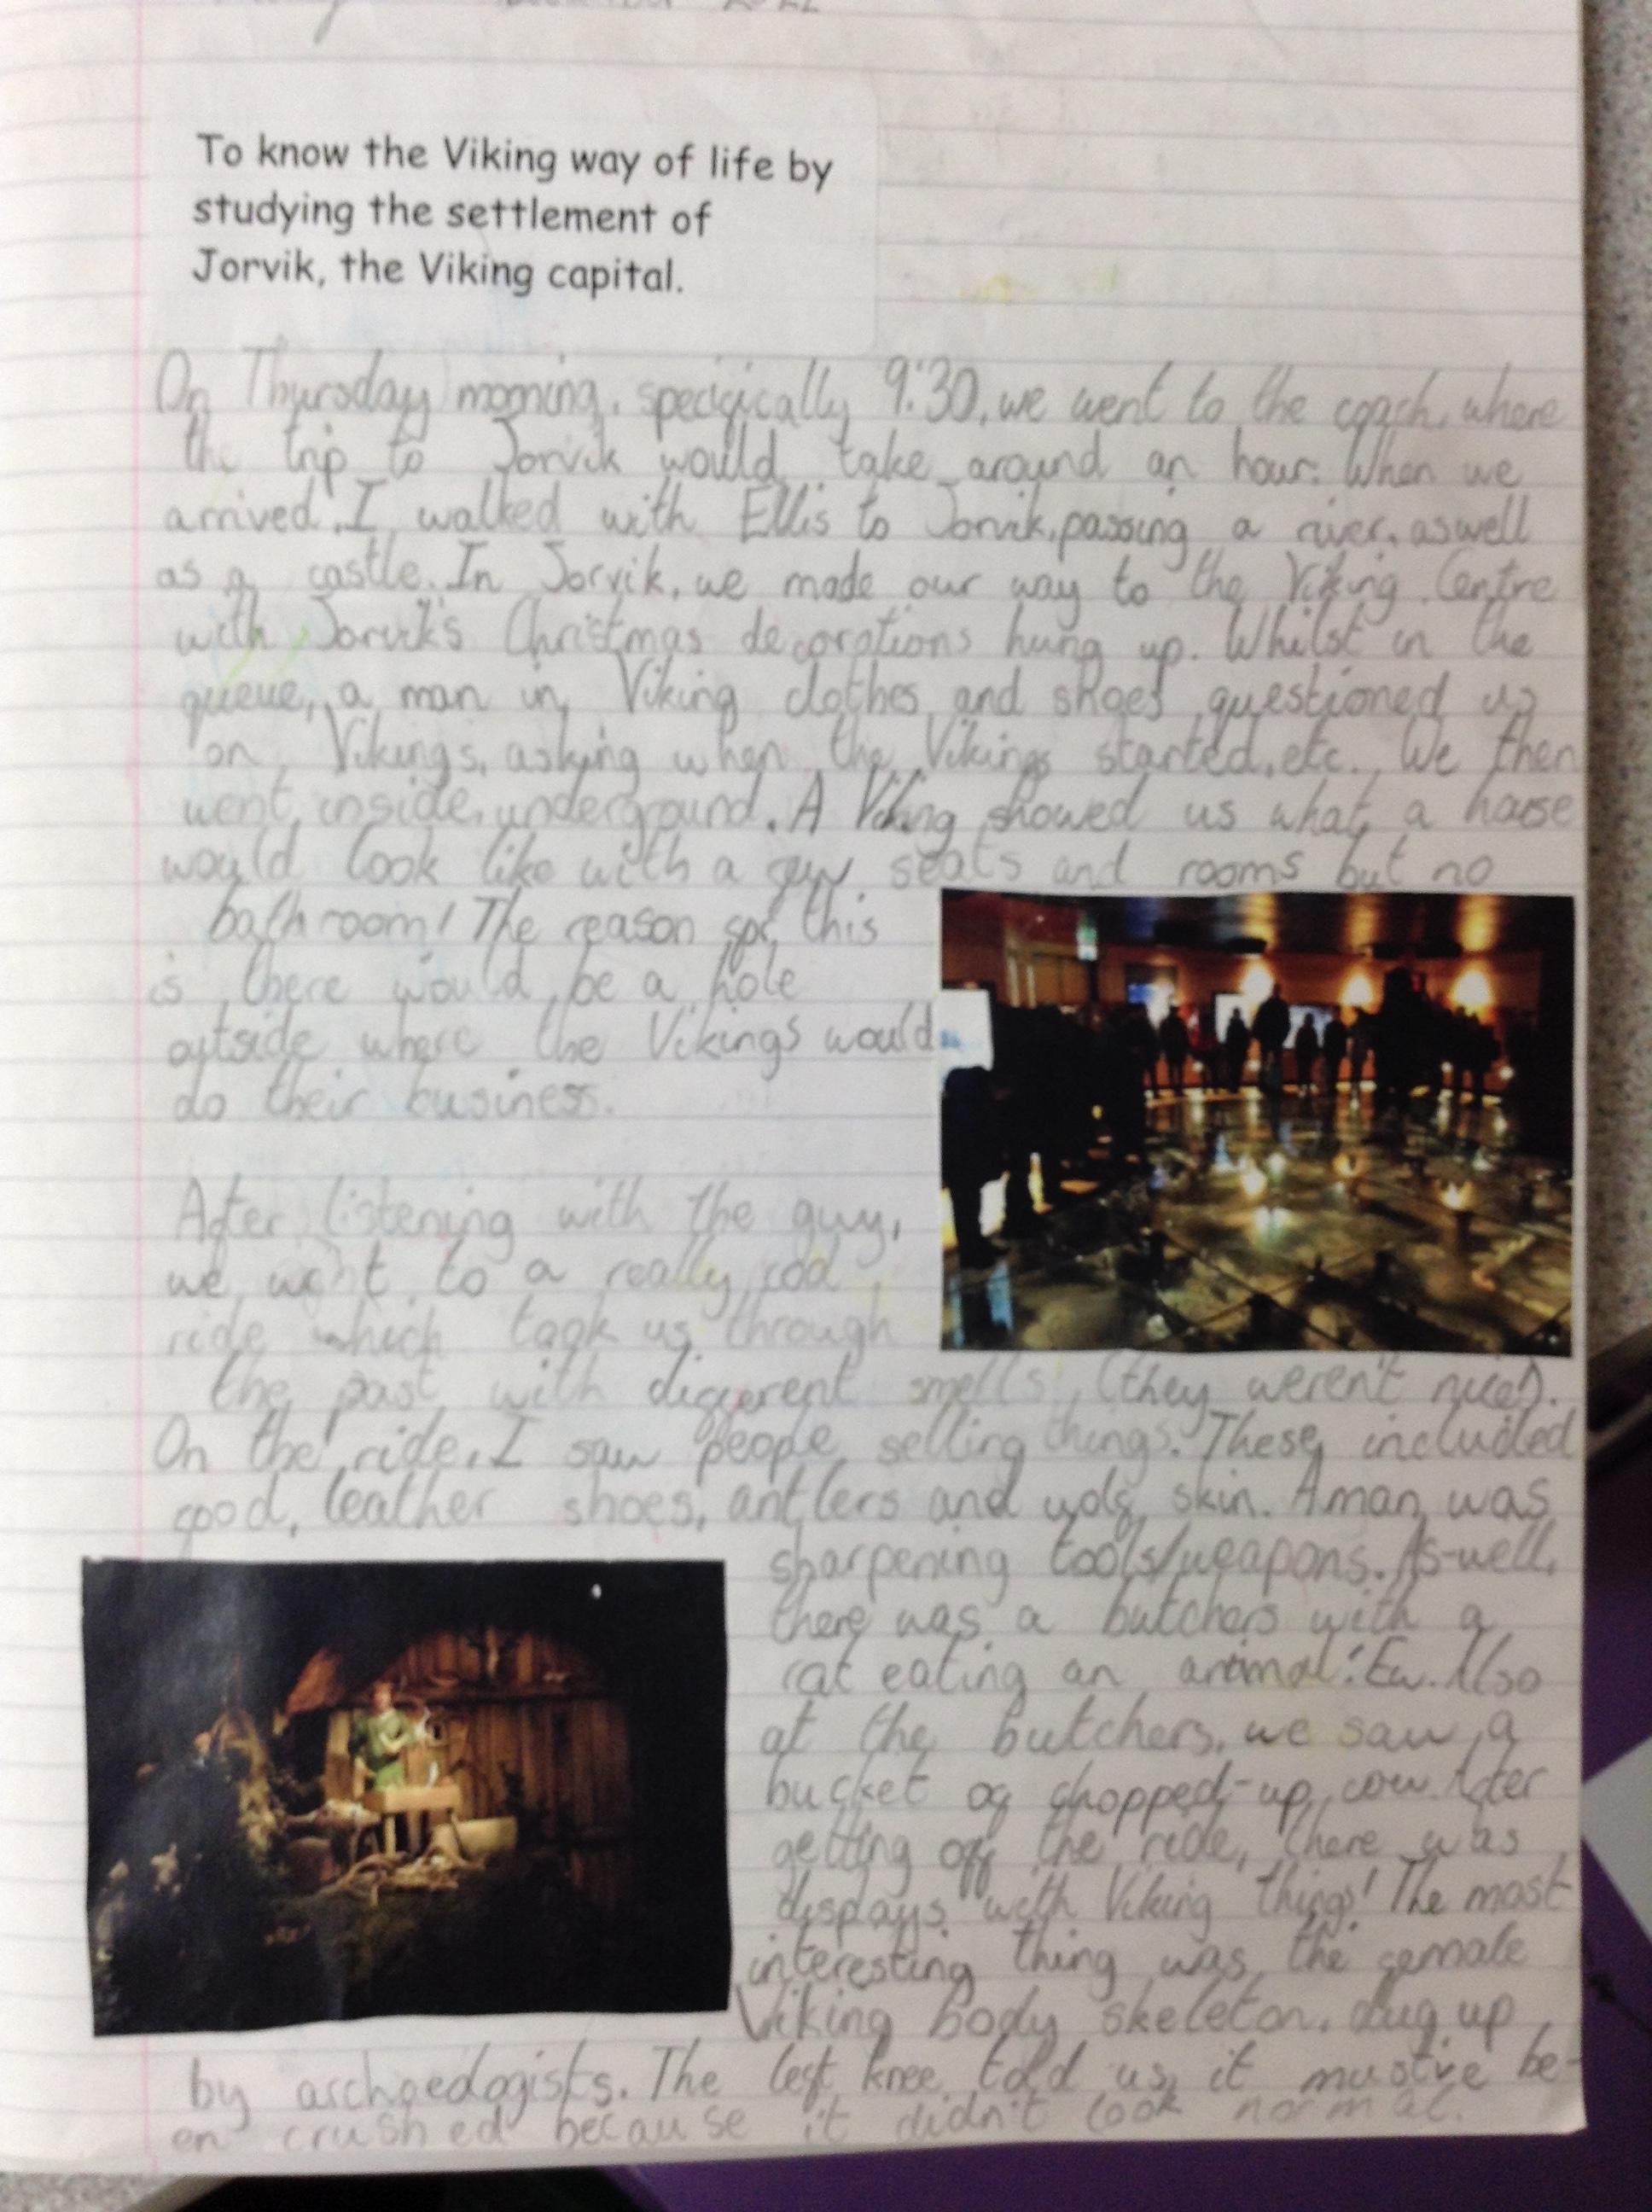 2022
To know the Viking way of life by
studying the settlement of
Jorvik, the Viking capital.
On Thursday morning, specifically 9:30, we went to the coach, where
the trip to Jorvik would take around an hour. When we
arrived, I walked with Ellis to Jorvik, passing a river, aswell
as a castle. In Jorvik, we made our way to the Viking Centre
with Jorvik's Christmas decorations hung up. Whilst in the
queue, a man in Viking clothes and shoes questioned us
on Vikings, asking when the Vikings started, etc. We then
went inside, underground. A Viking showed us what a house
would look like with a few seats and rooms but no
bathroom! The reason for this
is there would be a hole
outside where the Vikings would
do their business.
After listening with the guy,
we went to a really cool
ride which took us through
the past with different smells (they weren't nice!).
On the ride, I saw people selling things. These included
food, leather shoes, antlers and wolf skin. A man was
sharpening tools/weapons. As-well,
there was a butchers with a
rat eating an animal! Ew. Also
at the butchers, we saw a
bucket of chopped-up cow. After
getting off the ride, there was
displays with Viking things! The most
interesting thing was the female
Viking body skeleton, dug up
by archaeologists. The left knee told us it must've be-
en crushed because it didn't look normal.